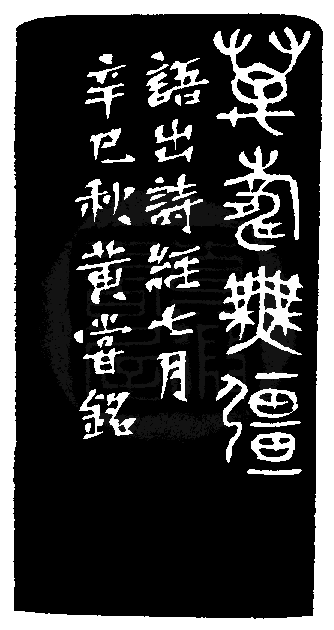 萬壽無疆
語出詩經七月
辛巳秋黃嘗銘